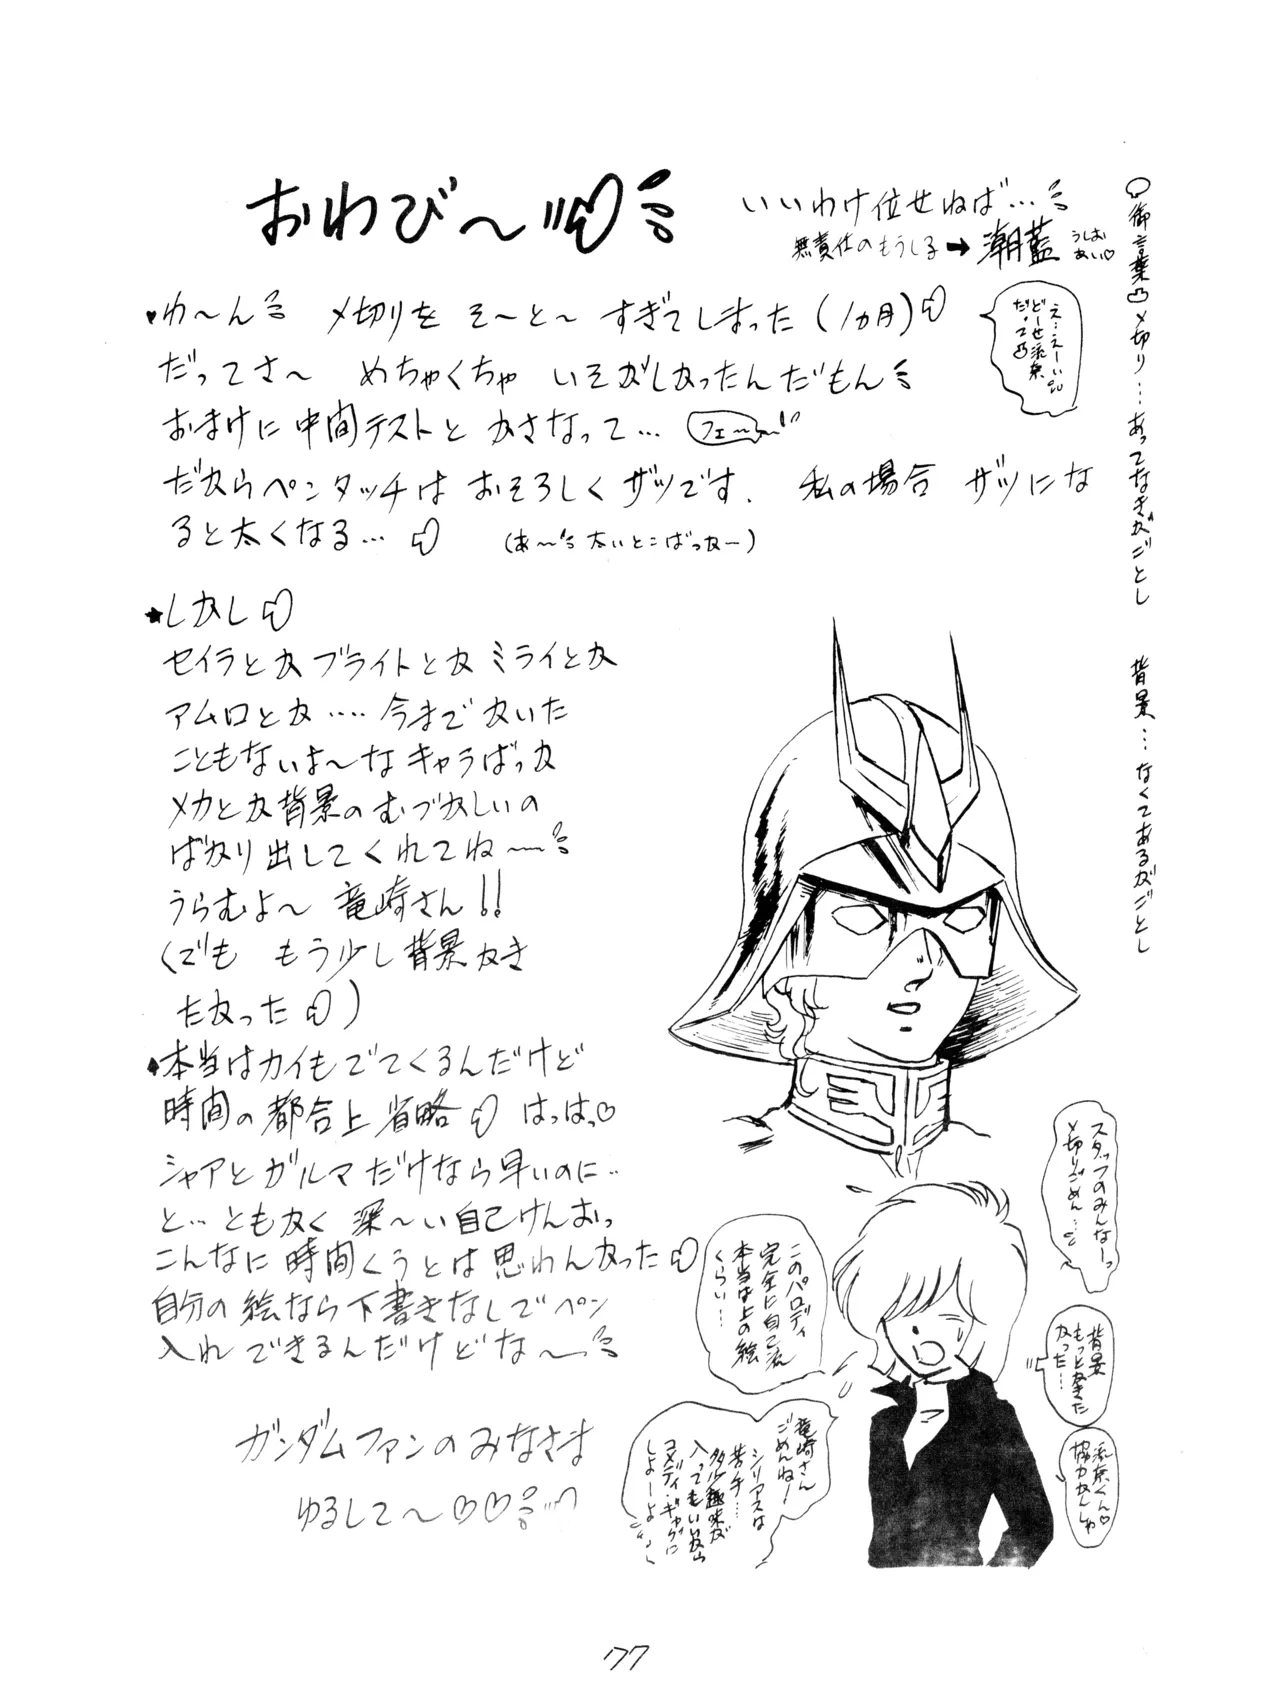 おわび〜
いいわけ位せねば…
無責任のもうしる➡潮藍 うしお あい♡
御言葉 〆切り…あってなきがごとし 背景…なくてあるがごとし
え…えーい
どーせ流奈
だってさ
わ〜ん 〆切りを そ〜と〜 すぎてしまった(1ヵ月)
だってさ〜 めちゃくちゃ いそがしかったんだもん
おまけに 中間テストと かさなって… フェ〜
だからペンタッチは おそろしく ザツです. 私の場合 ザツにな
ると太くなる… (あ〜 太いとこばっかー)
★しかし
セイラとか ブライトとか ミライとか
アムロとか …. 今まで かいた
こともないよ〜な キャラばっか
メカとか 背景の むづかしいの
ばかり 出してくれてね〜
うらむよ〜 竜崎さん!!
(でも もう少し 背景 かき
たかった)
◆本当はカイもでてくるんだけど
時間の 都合上 省略 はっはっ♡
シャアと ガルマ だけなら 早いのに…
と… ともかく 深〜い 自己けんおっ
こんなに 時間くうとは 思わんかった
自分の 絵なら 下書きなしで ペン
入れ できるんだけどな〜
ガンダムファンの みなさま
ゆるして〜♡♡
スタッフのみんなーっ
〆切りごめん…
このパロディ
完全に自己流
本当は上の絵
くらい…
背景
もっとかきた
かった…
竜崎さん
ごめんね!
シリアスは
苦手…
多少趣味が
入ってもいいから
コメディ・ギャグに
しよーよ
流奈くん♡
協力かんしゃ
77